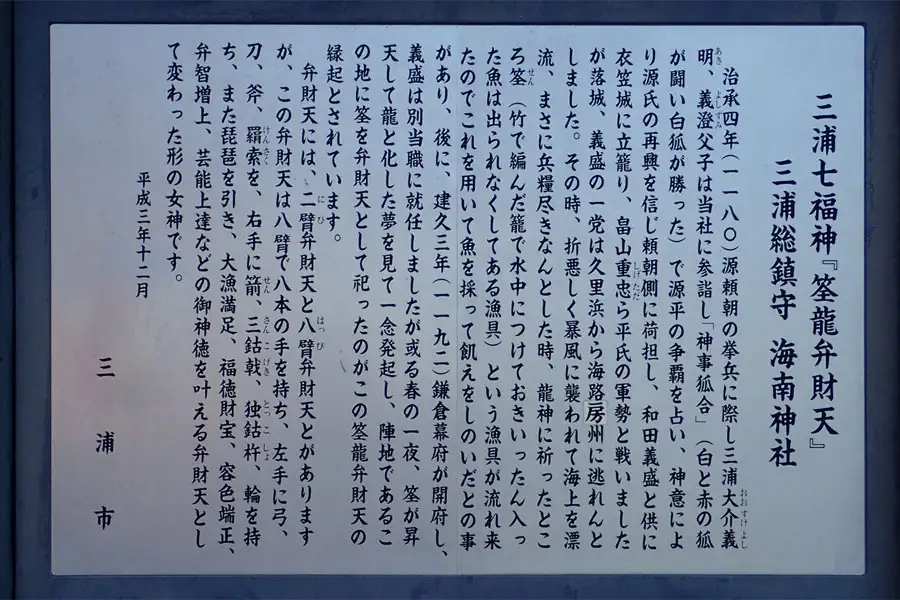 三浦七福神『筌龍弁財天』
三浦総鎮守 海南神社
治承四年（一一八〇）源頼朝の挙兵に際し三浦大介義
明、義澄父子は当社に参詣し「神事狐合」（白と赤の狐
が闘い白狐が勝った）で源平の争覇を占い、神意によ
り源氏の再興を信じ頼朝側に荷担し、和田義盛と供に
衣笠城に立籠り、畠山重忠ら平氏の軍勢と戦いました
が落城、義盛の一党は久里浜から海路房州に逃れんと
しました。その時、折悪しく暴風に襲われて海上を漂
流、まさに兵糧尽きなんとした時、龍神に祈ったとこ
ろ筌（竹で編んだ籠で水中につけておきいったん入っ
た魚は出られなくしてある漁具）という漁具が流れ来
たのでこれを用いて魚を採って飢えをしのいだとの事
があり、後に、建久三年（一一九二）鎌倉幕府が開府し、
義盛は別当職に就任しましたが或る春の一夜、筌が昇
天して龍と化した夢を見て一念発起し、陣地であるこ
の地に筌を弁財天として祀ったのがこの筌龍弁財天の
縁起とされています。
弁財天には、二臂弁財天と八臂弁財天とがあります
が、この弁財天は八臂で八本の手を持ち、左手に弓、
刀、斧、羂索を、右手に箭、三鈷戟、独鈷杵、輪を持
ち、また琵琶を引き、大漁満足、福徳財宝、容色端正、
弁智増上、芸能上達などの御神徳を叶える弁財天とし
て変わった形の女神です。
平成三年十二月
三浦市